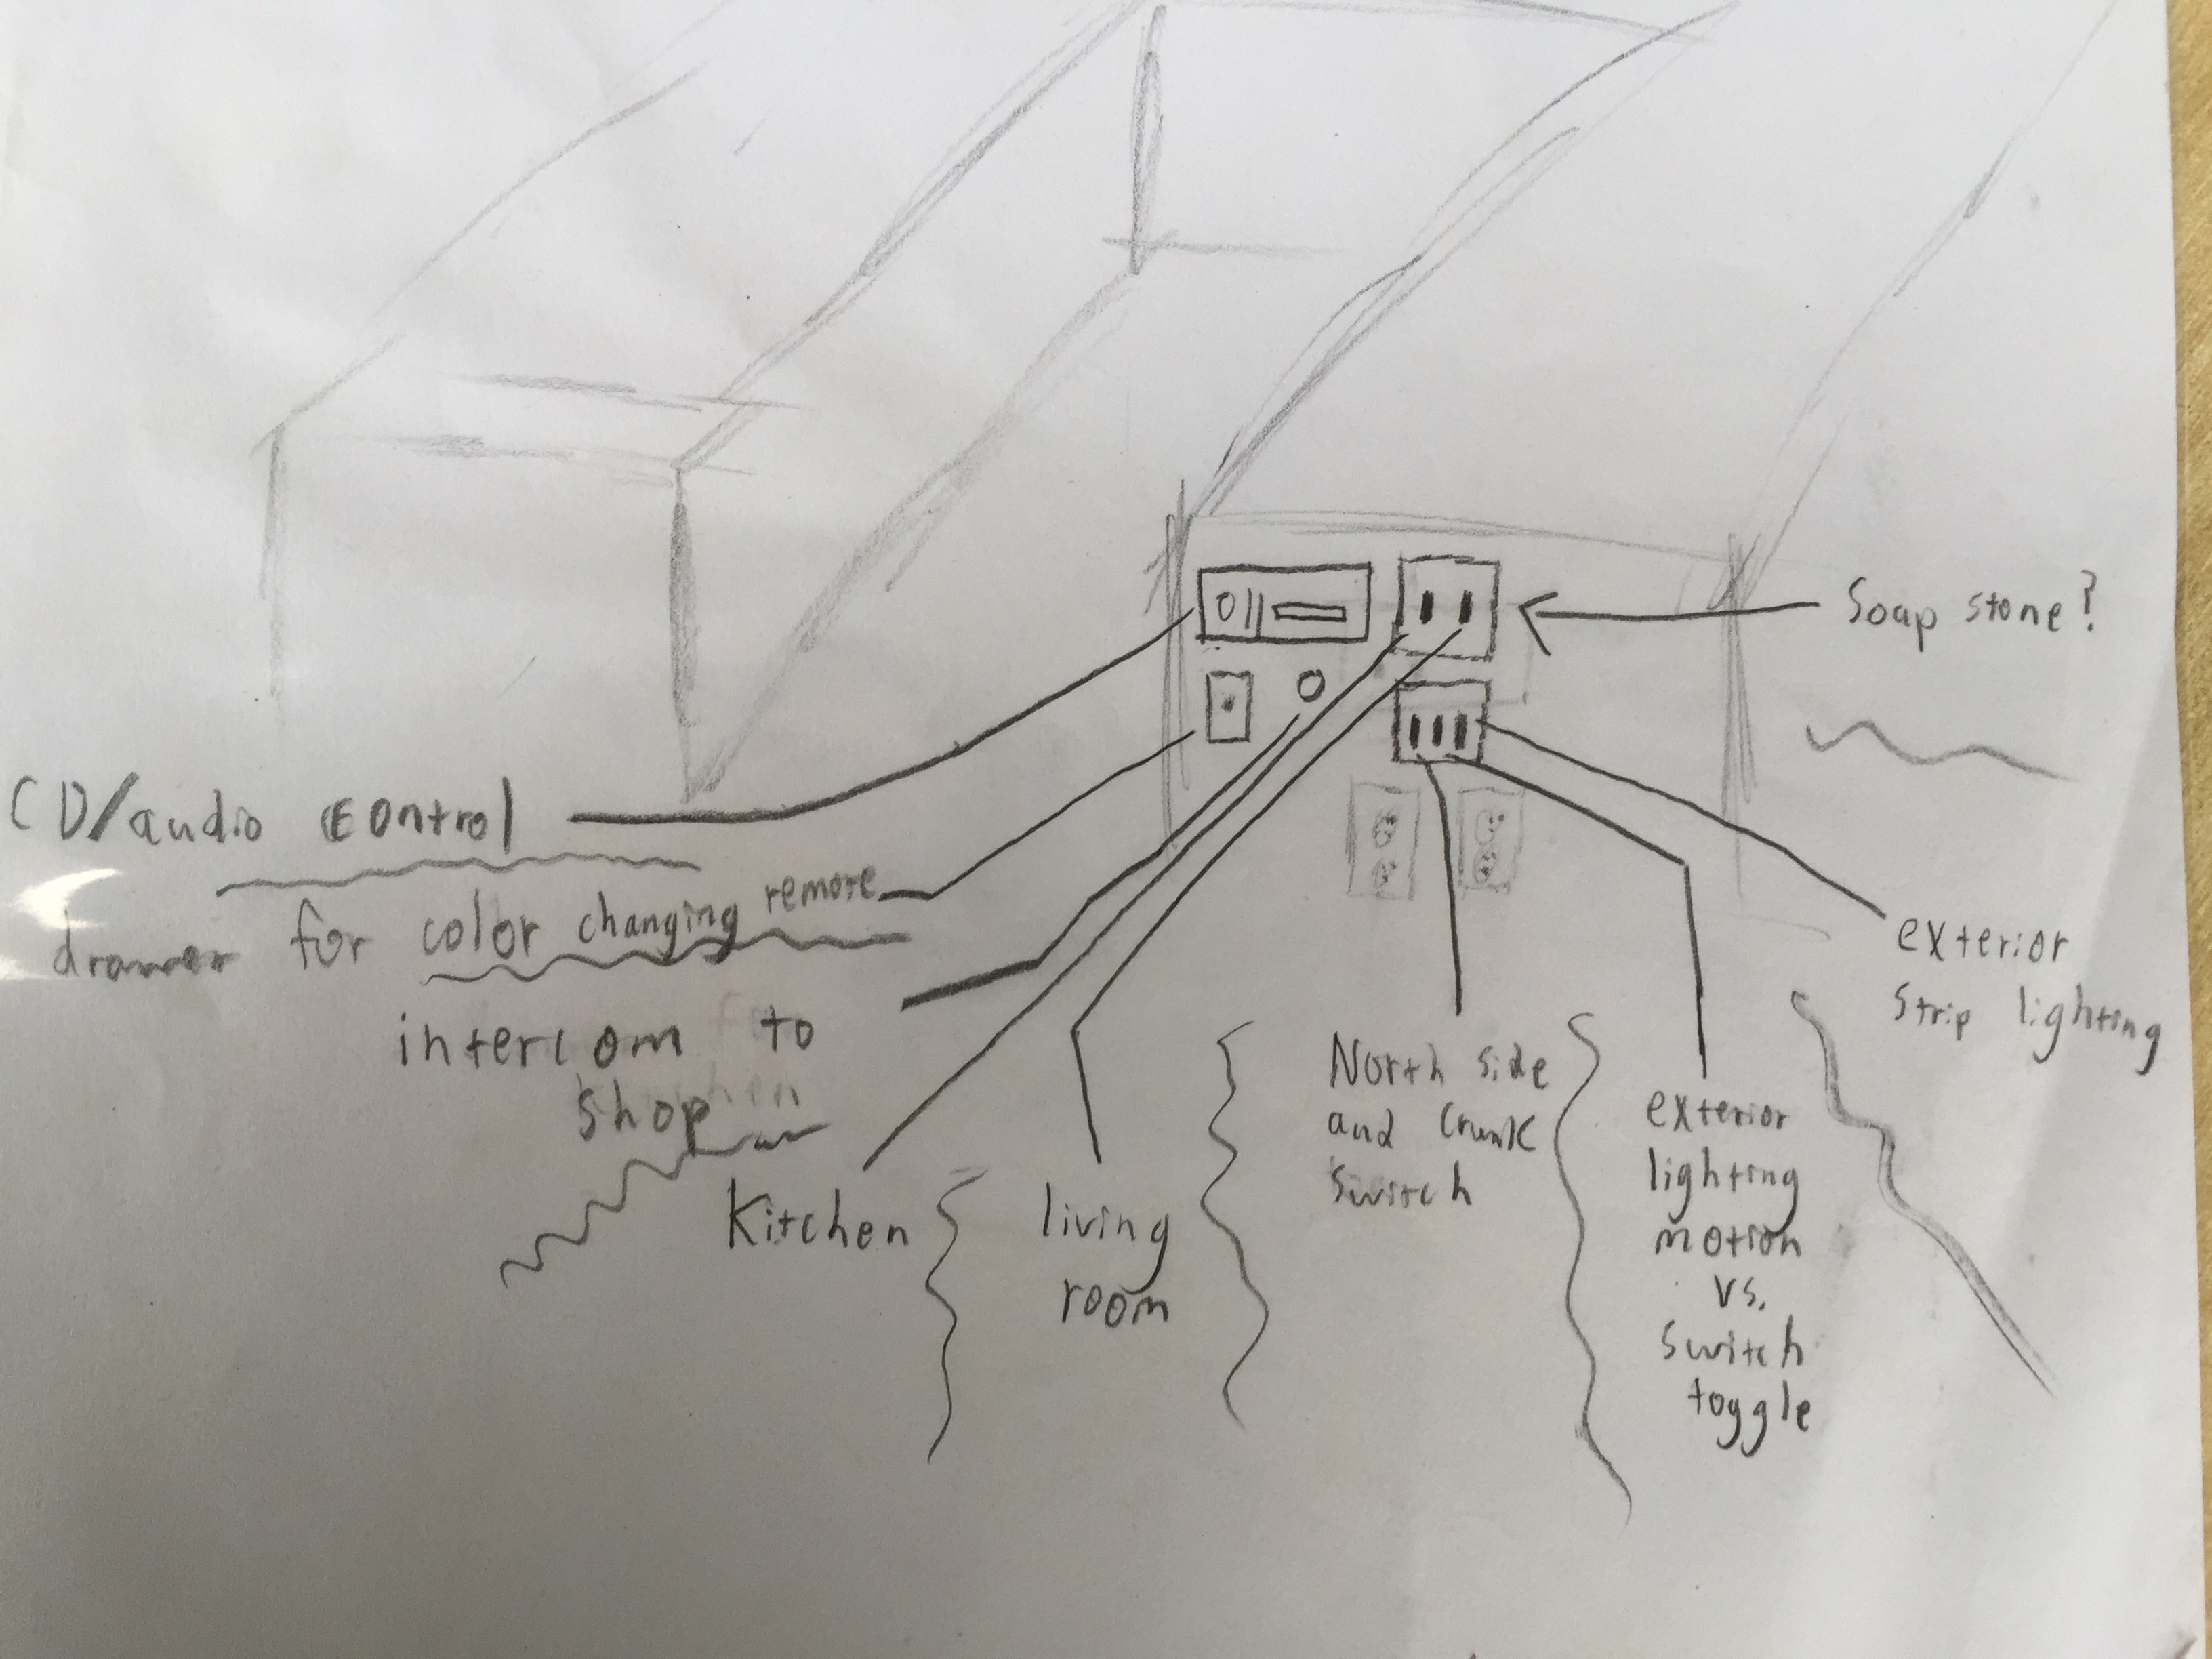 CD/audio control
drawer for color changing remote
intercom to
shop
Kitchen
living
room
North side
and
switch
exterior
lighting
motion
vs.
switch
toggle
exterior
strip lighting
Soap stone?